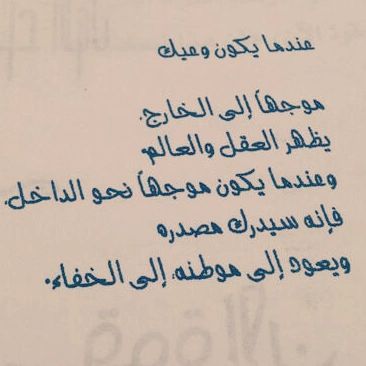 عندما يكون وعيك
موجهاً إلى الخارج.
يظهر العقل والعالم.
وعندما يكون موجهاً نحو الداخل.
فإنه سيدرك مصدره
ويعود إلى موطنه. إلى الخفاء.